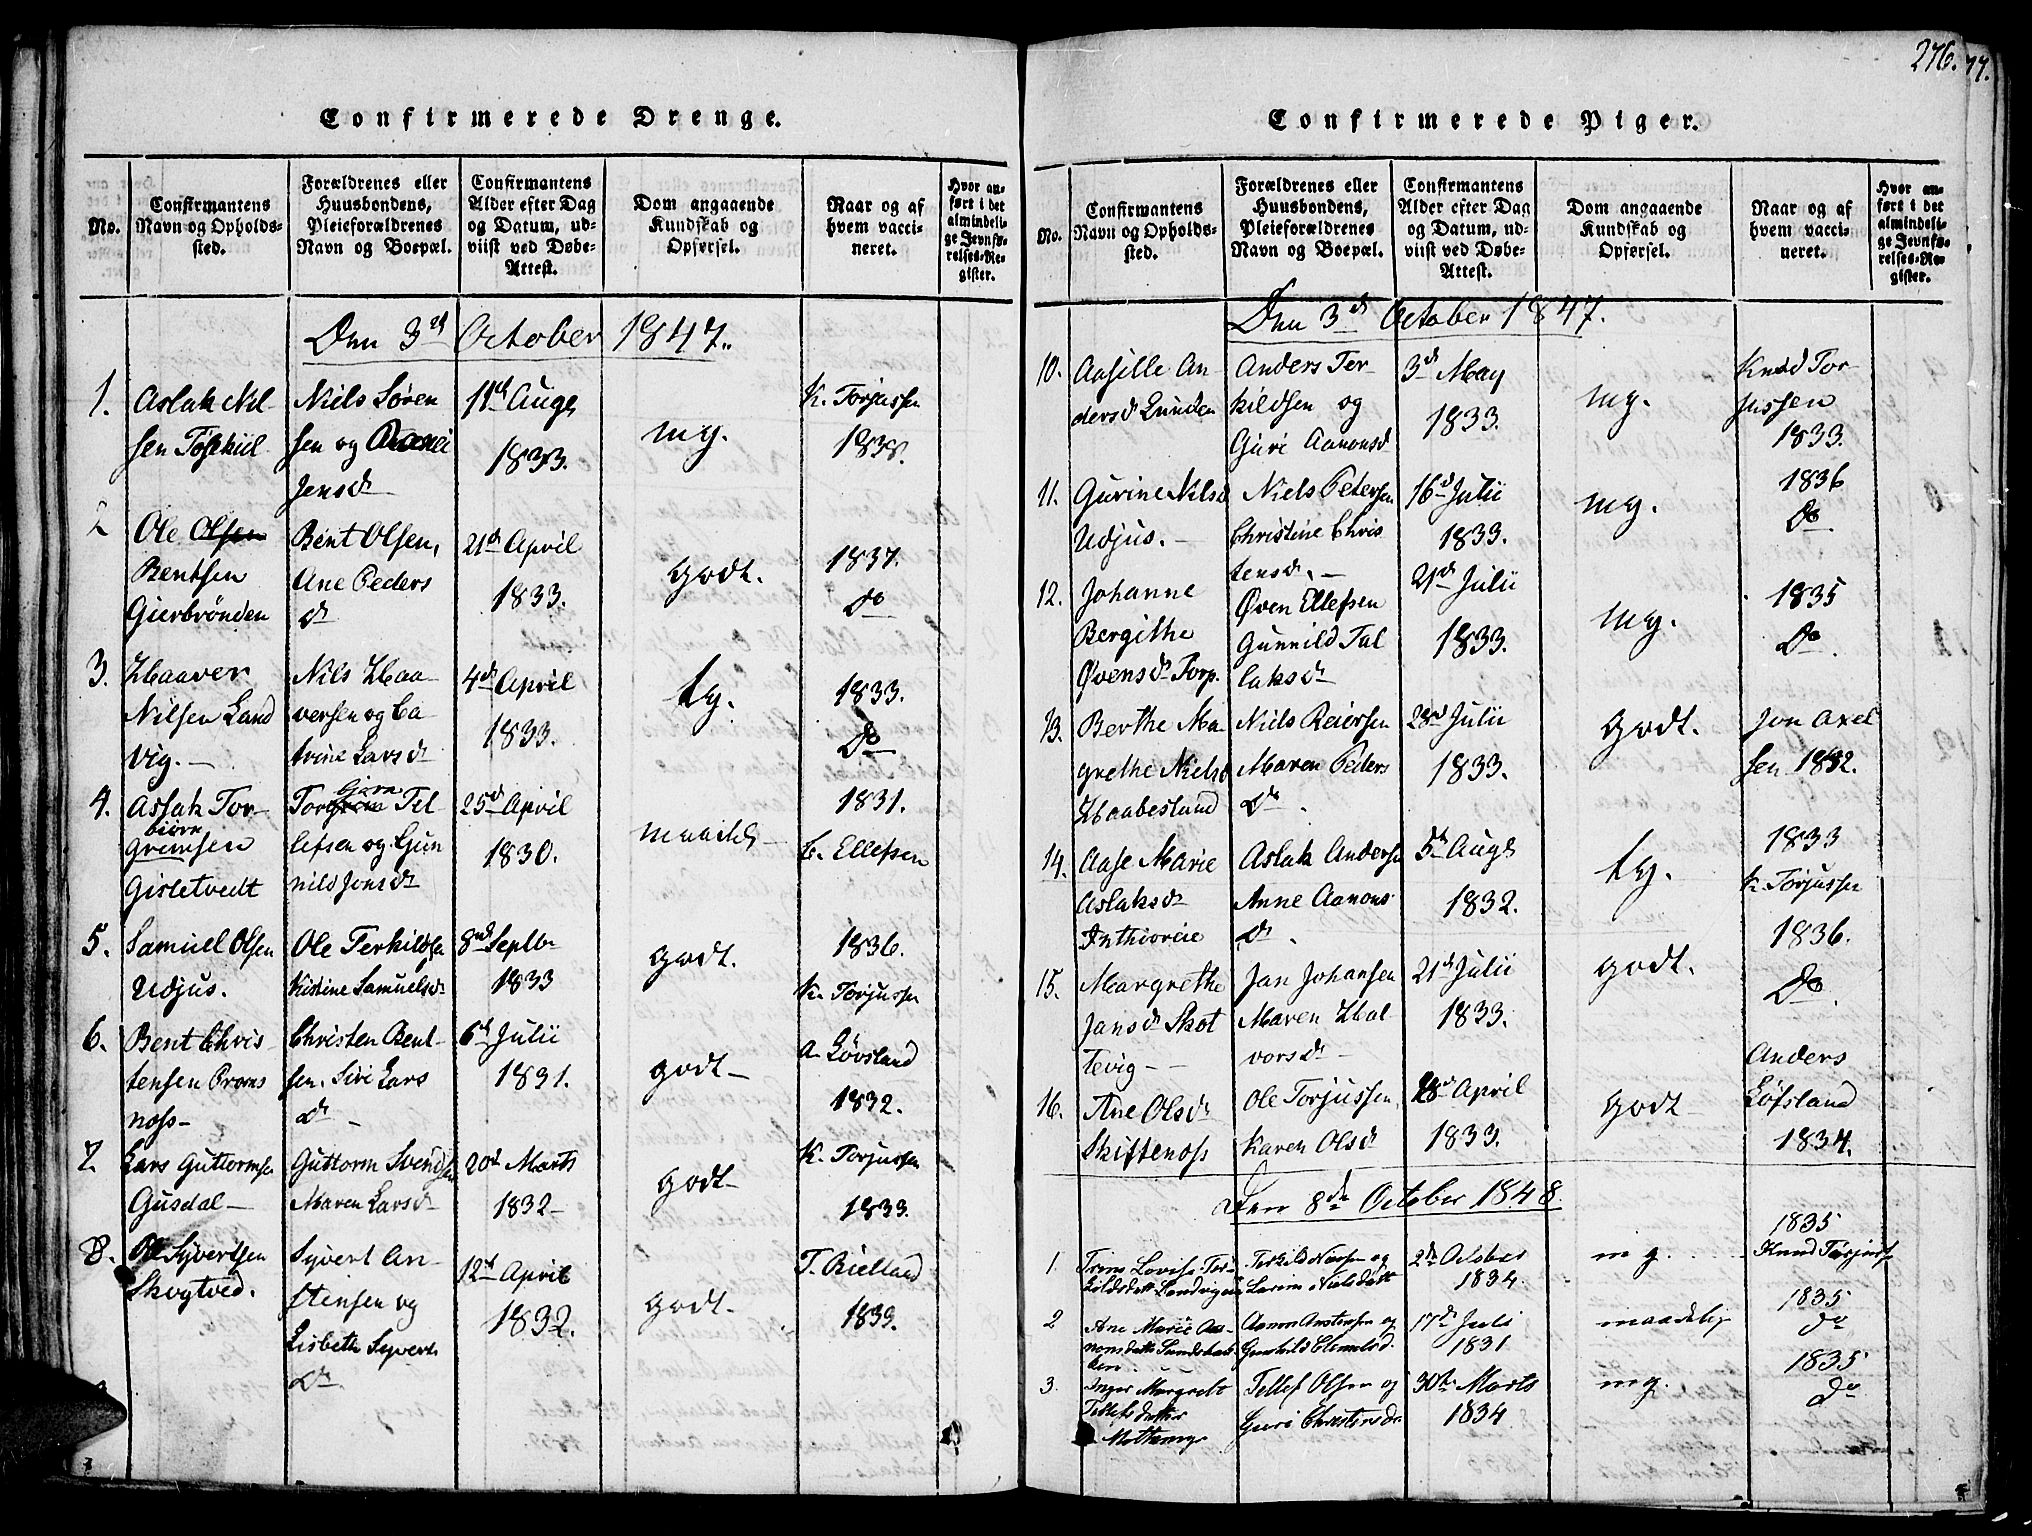 276.
77.
Confirmerede Drenge.
No.
Confirmantens
Navn og Opholds-
sted.
Forældrenes eller
Huusbondens,
Pleieforældrenes
Navn og Boepæl.
Confirmantens
Alder efter Dag
og Datum, ud-
viist ved Døbe-
Attest.
Dom angaaende
Kundskab og
Opførsel.
Naar og af
hvem vacci-
neret.
Hvor an-
ført i det
almindeli-
ge Jevnfø-
relses-Re-
gister.
Den 3d October 1847.
1.
Aslak Nil-
sen
Niels Søren
sen og
Jensdr
11th Augs
1833.
mg.
K. Torjussen
1838.
2
Ole Olsen
Bentsen
Gierbrönden
Bent Olsen,
Ane Peders
dr
21d April
1833.
godt.
1837.
Do
3.
Haaver
Nilsen Land
vig.
Nils Haa-
versen og Ca-
trine Larsdr
4d April
1833.
tg.
1833.
Do
4.
Aslak Tor-
biørn
gremsen
Gisletvedt
Torgrem Tel-
lefsen og Gun
nild Jonsdr
25d April
1830.
1831.
C. Ellefsen
5.
Samuel Olsen
Udjus.
Ole Terkildsen
Kistine Samuelsdr
8nd Septbr
1833
godt.
1836.
K. Torjussen
6.
Bent Chris-
tensen Proms
noss-
Christen Bent-
sen. Siri Lars
dr
6d Julii
1831.
godt-
A. Løvsland
1832.
7.
Lars Guttormsen
Gusdal-
Guttorm Svendsen
Maren Larsdr
20d Marts
1832-
godt-
K. Torjussen
1833.
8.
Ole Syvertsen
Skogtved.
Syvert An-
stensen og
Lisbeth Syverts
Dr.
12d April
1832.
godt-
T. Rielland
1839.
Confirmerede Piger.
No.
Confirmantens
Navn og Opholds-
sted.
Forældrenes eller
Huusbondens,
Pleieforældrenes
Navn og Boepæl.
Confirmantens
Alder efter Dag
og Datum, ud-
viist ved Døbe-
Attest.
Dom angaaende
Kundskab og
Opførsel.
Naar og af
hvem vacci-
neret.
Hvor an-
ført i det
almindeli-
ge Jevnfø-
relses-Re-
gister.
Den 3d October 1847.
10.
Aasille An
dersd Lunden
Anders Ter-
kildsen og
Guri Aanonsd
3d May
1833.
mg.
Knud Tor-
jussen
1833.
11.
Gurine Nilsd
Udjus.-
Niels Petersen
Christine Chris
tensdr.-
16d Julii
1833.
mg.
1836
Do
12.
Johanne
Bergithe
Øvensdr Torp.
Øven Ellefsen
Gunnild Tal
laksdr
21d Julii
1833.
mg.
1835
Do
13.
Berthe Ma
grethe Nielsd
Haabesland
Niels Reiersen
Maren Peders
Dr.
28d Julii
1833.
godt.
Jon Axel
sen 1832.
14.
Aase Marie
Aslaksdr
Aslak Andersen
Anne Aanons
Dr.
5d Augs
1832.
tg.
1833
K. Torjussen
15.
Margrethe
Jansdr Skot
tevig-
Jan Johansen
Maren Hal
vorsdr-
21d Julii
1833.
godt.
1836.
Do.
16.
Ane Olsdr
Skiftenoss
Ole Torjussen,
Karen Olsdr
28d April
1833.
godt-
Anders
Løfsland
1834.
Den 8de October 1848.
1.
Trine Lovise Ter-
kildsdatt Landvigen
Terkild Narsen og
Larine Nielsdatt
2dn October
1834.
mg.
1835
Knud Torjuss
2
Ane Marie Aa-
nonsdatt
Aanon Anstensen og
Gunhild Clemetsd.
17d Juli
1831
maadelig
1835
Do
3.
Inger Margrete
Tellefsdatter
Tellef Olsen og
Guri Christensdr
30te Marts
1834
mg.
1835
Do